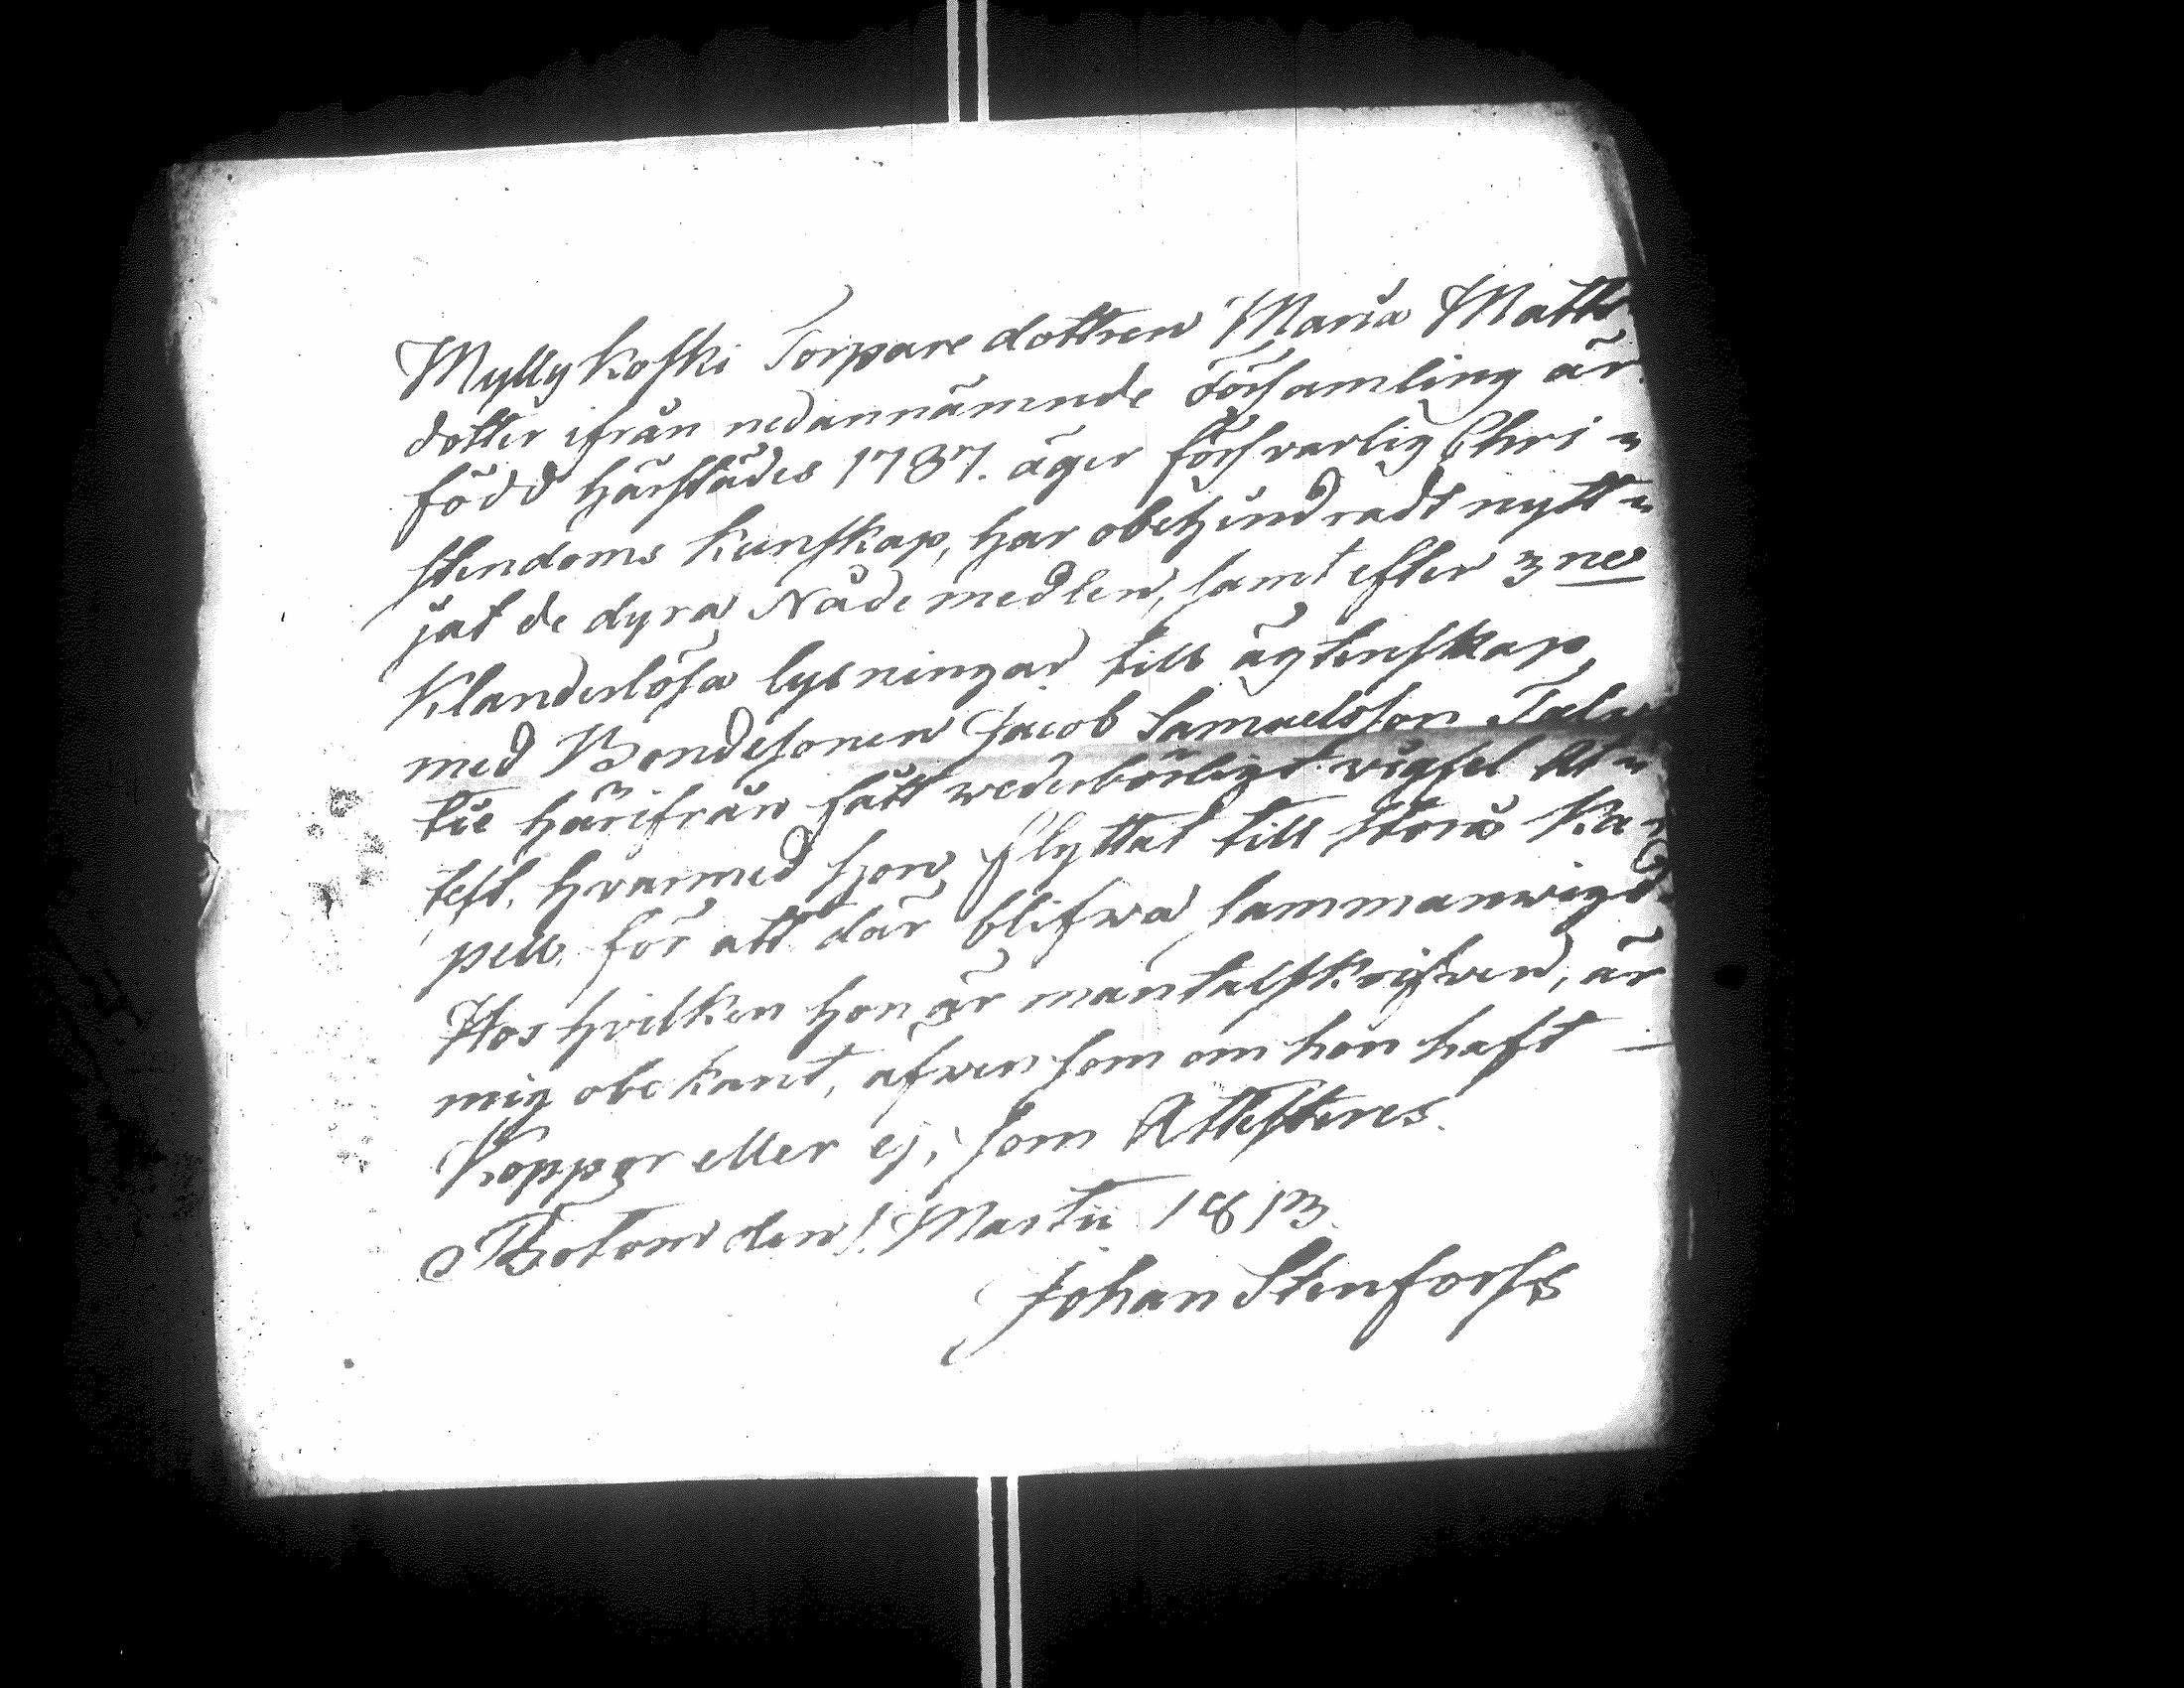 Myllykoski Torpare dottren Maria Matts
dotter ifrån nedannämnde Församling är
född härstädes 1787. äger försvarlig Chri-
stendoms kunskap, har obehindradt nytt-
jat de dyra Nådemedlen, samt efter 3ne
Klanderlösa lysningar till ägtenskap
med Bondesonen Jacob Samuelsson Talw
tie härifrån fått wederbörligt vigsel At-
test. hvarmed hon flyttat till Storå Ka-
pell. för att där blifwa sammanwigd.
Hos hvilken hon är mantalskrifven, är
mig obekant, äfven som om hon haft
Koppor eller ej, som Attesteres.
Bötom den 1. Martii 1813.
Johan Stenforss